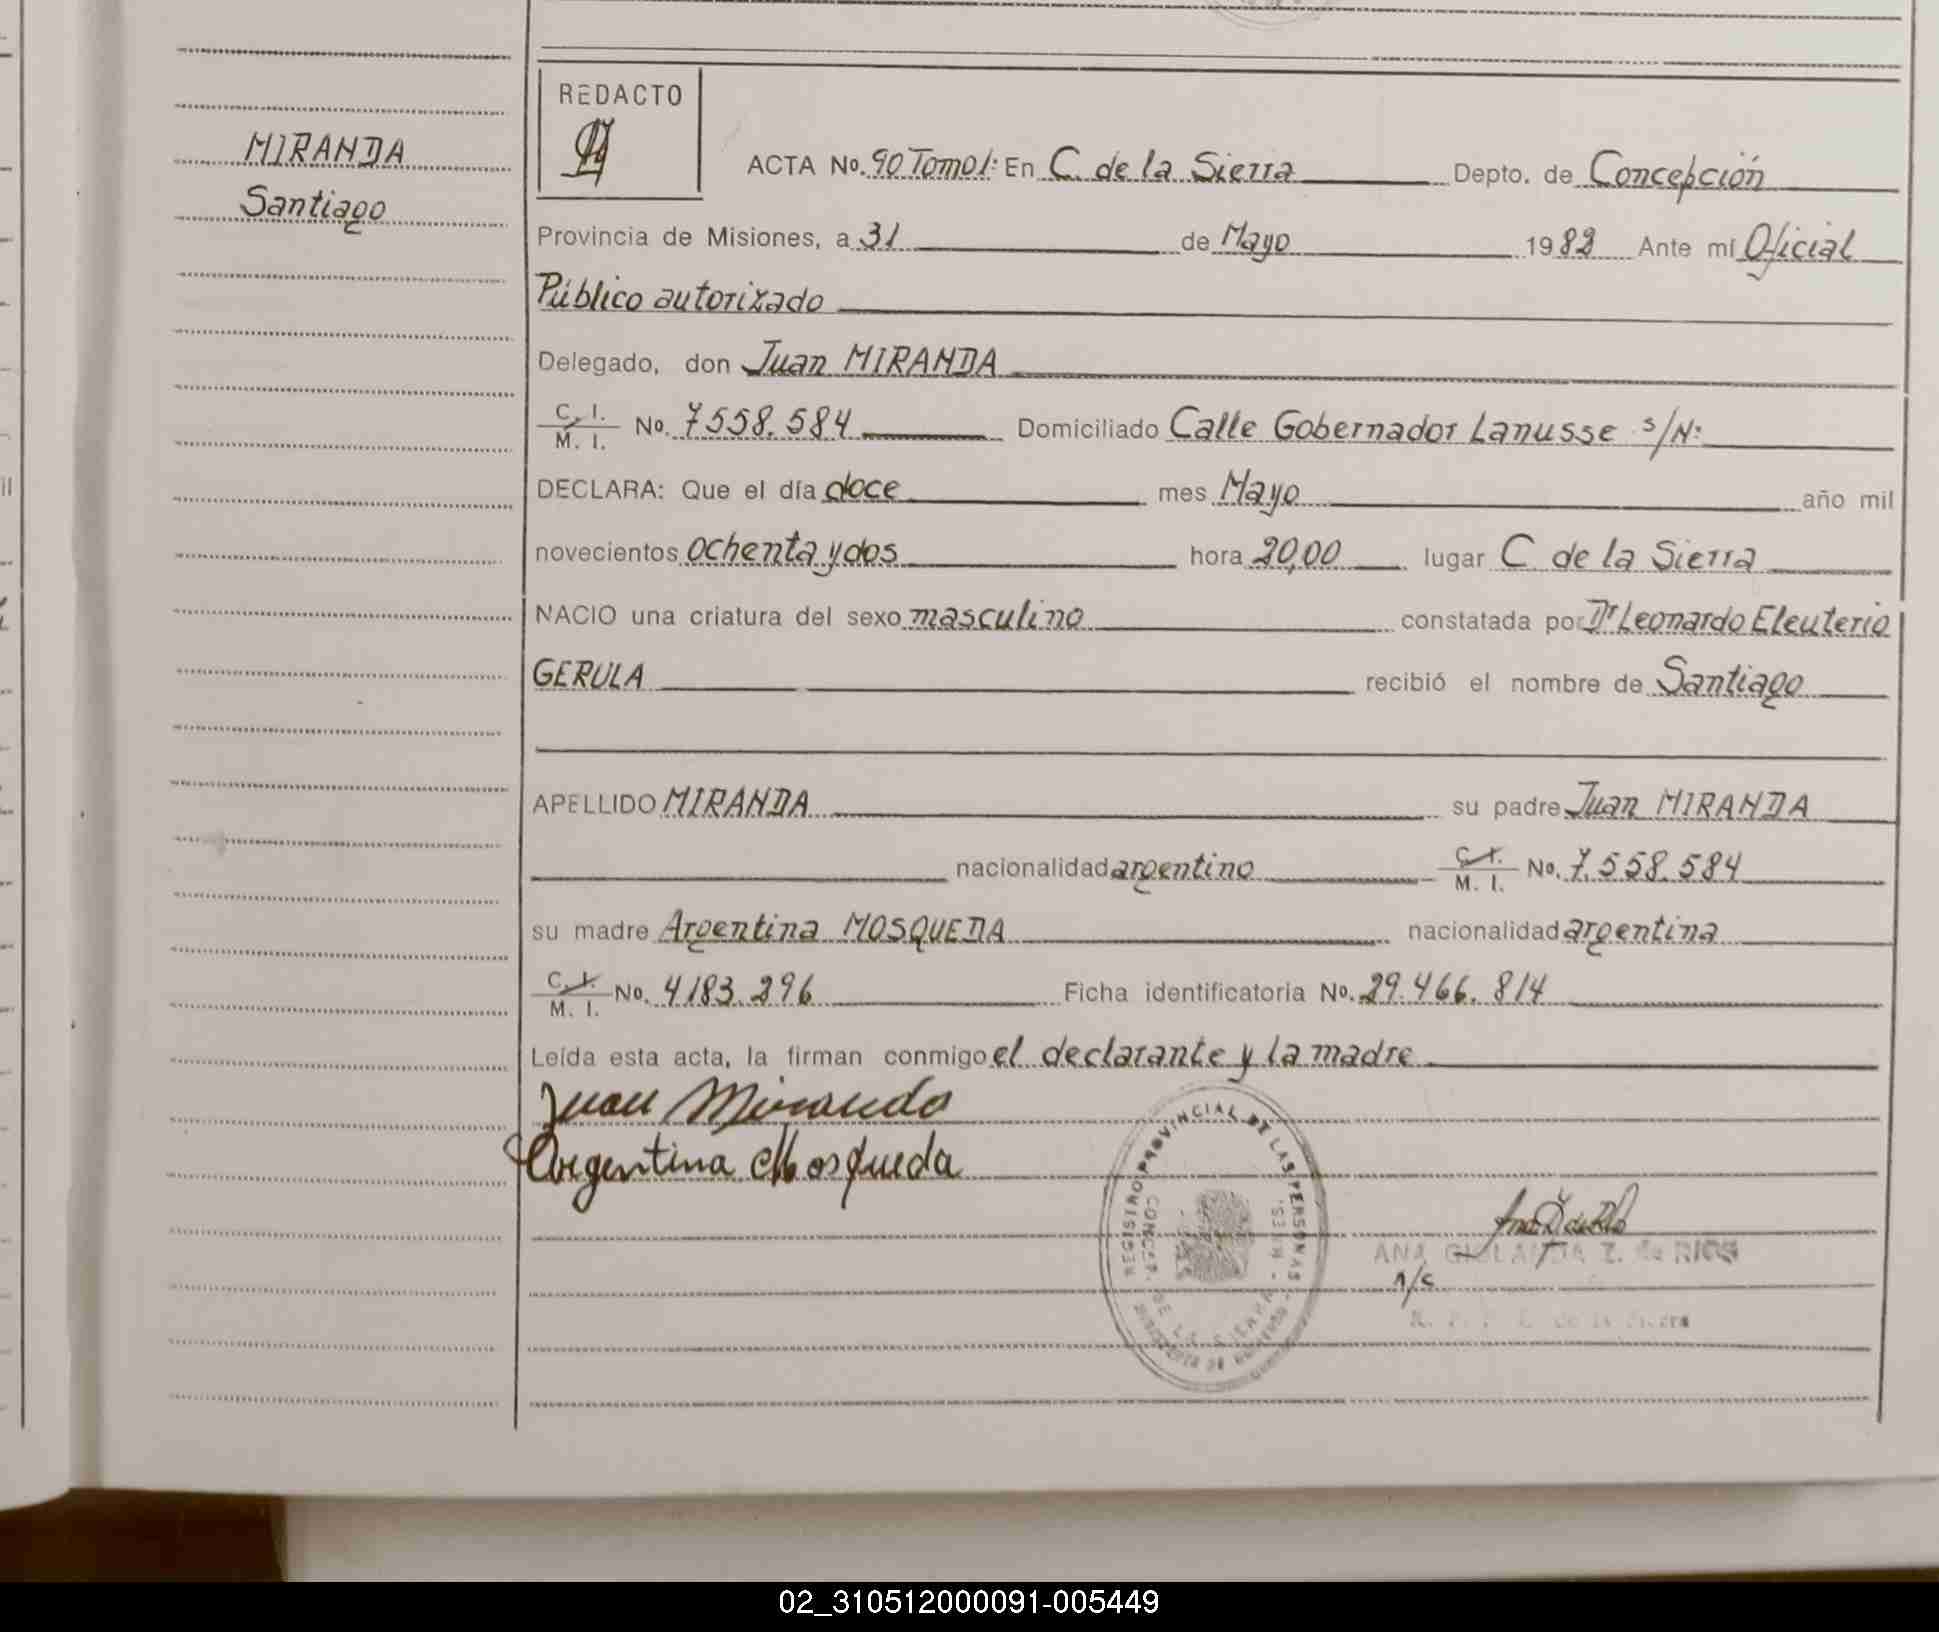 MIRANDA
Santiago
REDACTO
ACTA No. 90 Tomo I: En C. de la Sierra Depto. de Concepción
Provincia de Misiones, a 31 de Mayo 1982 Ante mí Oficial
Público autorizado
Delegado, don Juan MIRANDA
C. I. M. I. No. 7558.584 Domiciliado Calle Gobernador Lanusse s/N:
DECLARA: Que el día doce mes Mayo año mil
novecientos ochenta y dos hora 20,00 lugar C. de la Sierra
NACIO una criatura del sexo masculino constatada por Dr Leonardo Eleuterio
GERULA recibió el nombre de Santiago
APELLIDO MIRANDA su padre Juan MIRANDA
nacionalidad argentino C. I. M. I. No. 7.558.584
su madre Argentina MOSQUEDA nacionalidad argentina
C. I. M. I. No. 4183.296 Ficha identificatoria No. 29.466.814
Leída esta acta, la firman conmigo el declarante y la madre
Juan Miranda
Argentina Mosqueda
REGISTRO PROVINCIAL DE LAS PERSONAS
CONCEP. DE LA SIERRA
ANA Z. de RIOS
de la Sierra
02_310512000091-005449